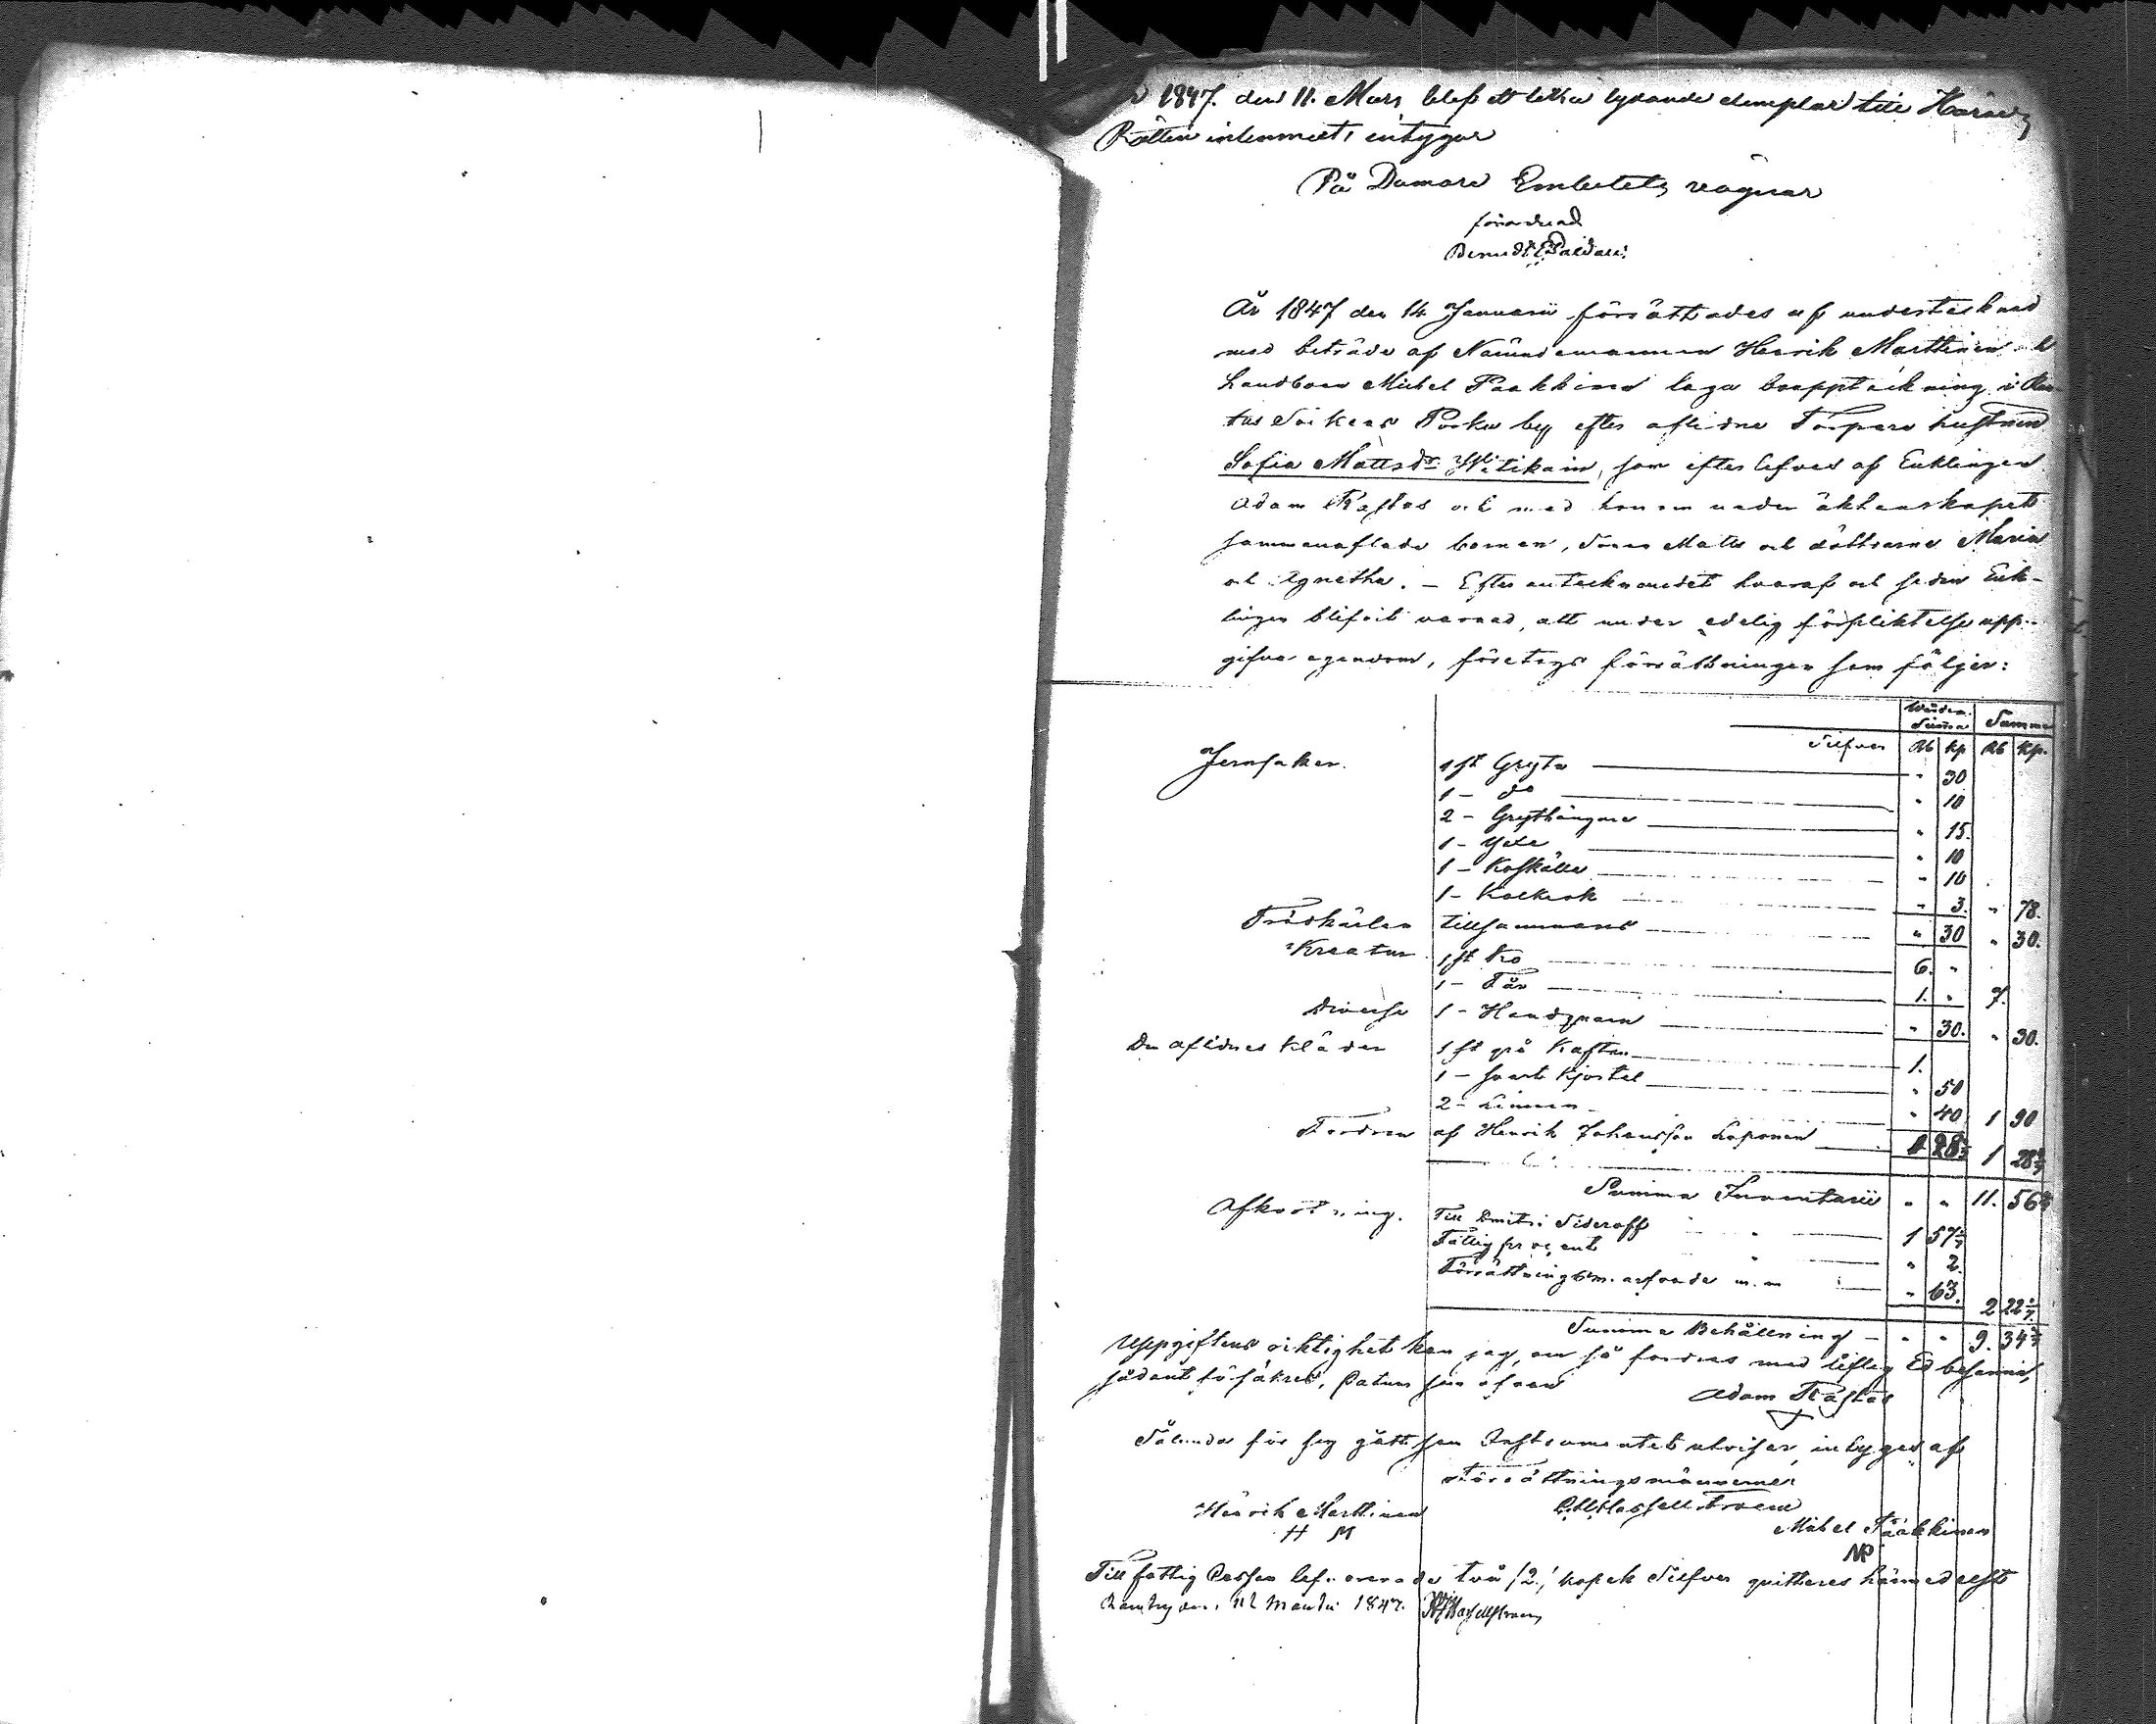 1847. den 11. Mars blef ett lika lydande exemplar till Härads
Rätten inlemnadt, intygar
På Domare Embetets vägnar
År 1847 den 14 Januarii förrättades af undertecknad
med beträde af Nämndemannen Henrik Marttinen och
Landboen Michel Paakkinen laga bouppteckning i
by efter aflidne Torpare hustrun
Sofia Mattsdr Witikain, som efterlefves af Enklingen
Adam Rästas och med honom under äktenskapet
sammanaflade barnen, Sonen Matts och döttrarne Maria
och Agnetha. – Efter antecknandet hvaraf och sedan Enk-
lingen blifvit varnad, att under edelig förpliktelse upp-
gifva egendom, företogs förrättningen som följer:
Summa
Silfver Rb kp Rb Kp.
Jernsaker. 1 st Gryta " 30
1 – do " 10
2 – Grythängare " 15.
1 – Yxe " 10
1 – Koskälla " 10
1 – " 3. " 78.
Trädkärlen tillsammans " 30 " 30.
Kreatur 1 st Ko 6. "
1 – Får 1. " 7.
Diverse 1 – Handqvarn " 30. " 30.
Den aflidnes kläder 1 st grå Kaftan 1.
1 – svart Kjortel " 50
2 – Linnen " 40 1 90
Fordran af Henrik Johansson Loponen 1 28 4/7 1 28 4/7
Summa Inventarii " " 11. 56 4/7
Afkortning. Till Dmitri Sideroff 1 57 1/7
Fattig procent " 2.
Förrättningsm. arfvode m. m " 63. 2 22 1/7
Summa Behållning – " " 9. 34 3/7
Uppgiftens riktighet kan jag, om så fordras med liflig Ed besanna,
sådant försäkras, Datum som ofvan
Adam Rästas
Sålunda för sig gått som Instrumentet utvisar, intygas af
Förrättningsmännerne
Henrik Marttinen
H M
Michel Paakkinen
Till fattig Cassan lefvererade två /2./ kopek Silfver qvitteras härmedelst
1847.